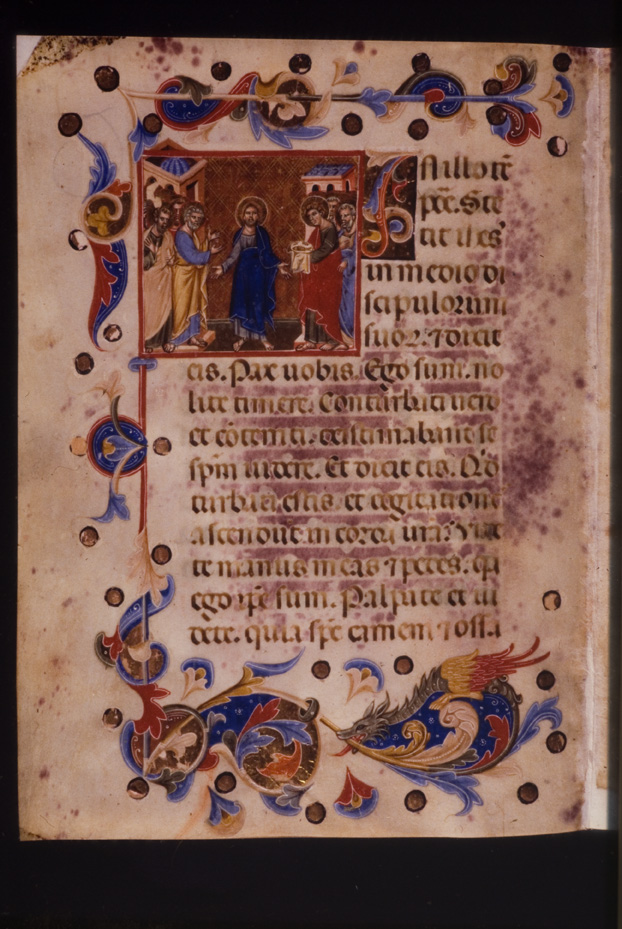 In illo tē
pře. Ste
tit ih̄s
in medio di
scipulorum
suoꝝ. ⁊ dicit
eis. Pax uobis. Ego sum. no
lite timere. Conturbati uero
et cōterriti. existimabant se
sp̄m uidere. Et dicit eis. Qͥd
turbati estis. et cogitationes
ascendunt in corda ur̄a? Vide
te manus meas ⁊ pedes. qͥa
ego ip̄e sum. Palpate et ui
dete. quia sp̄s carnem ⁊ ossa